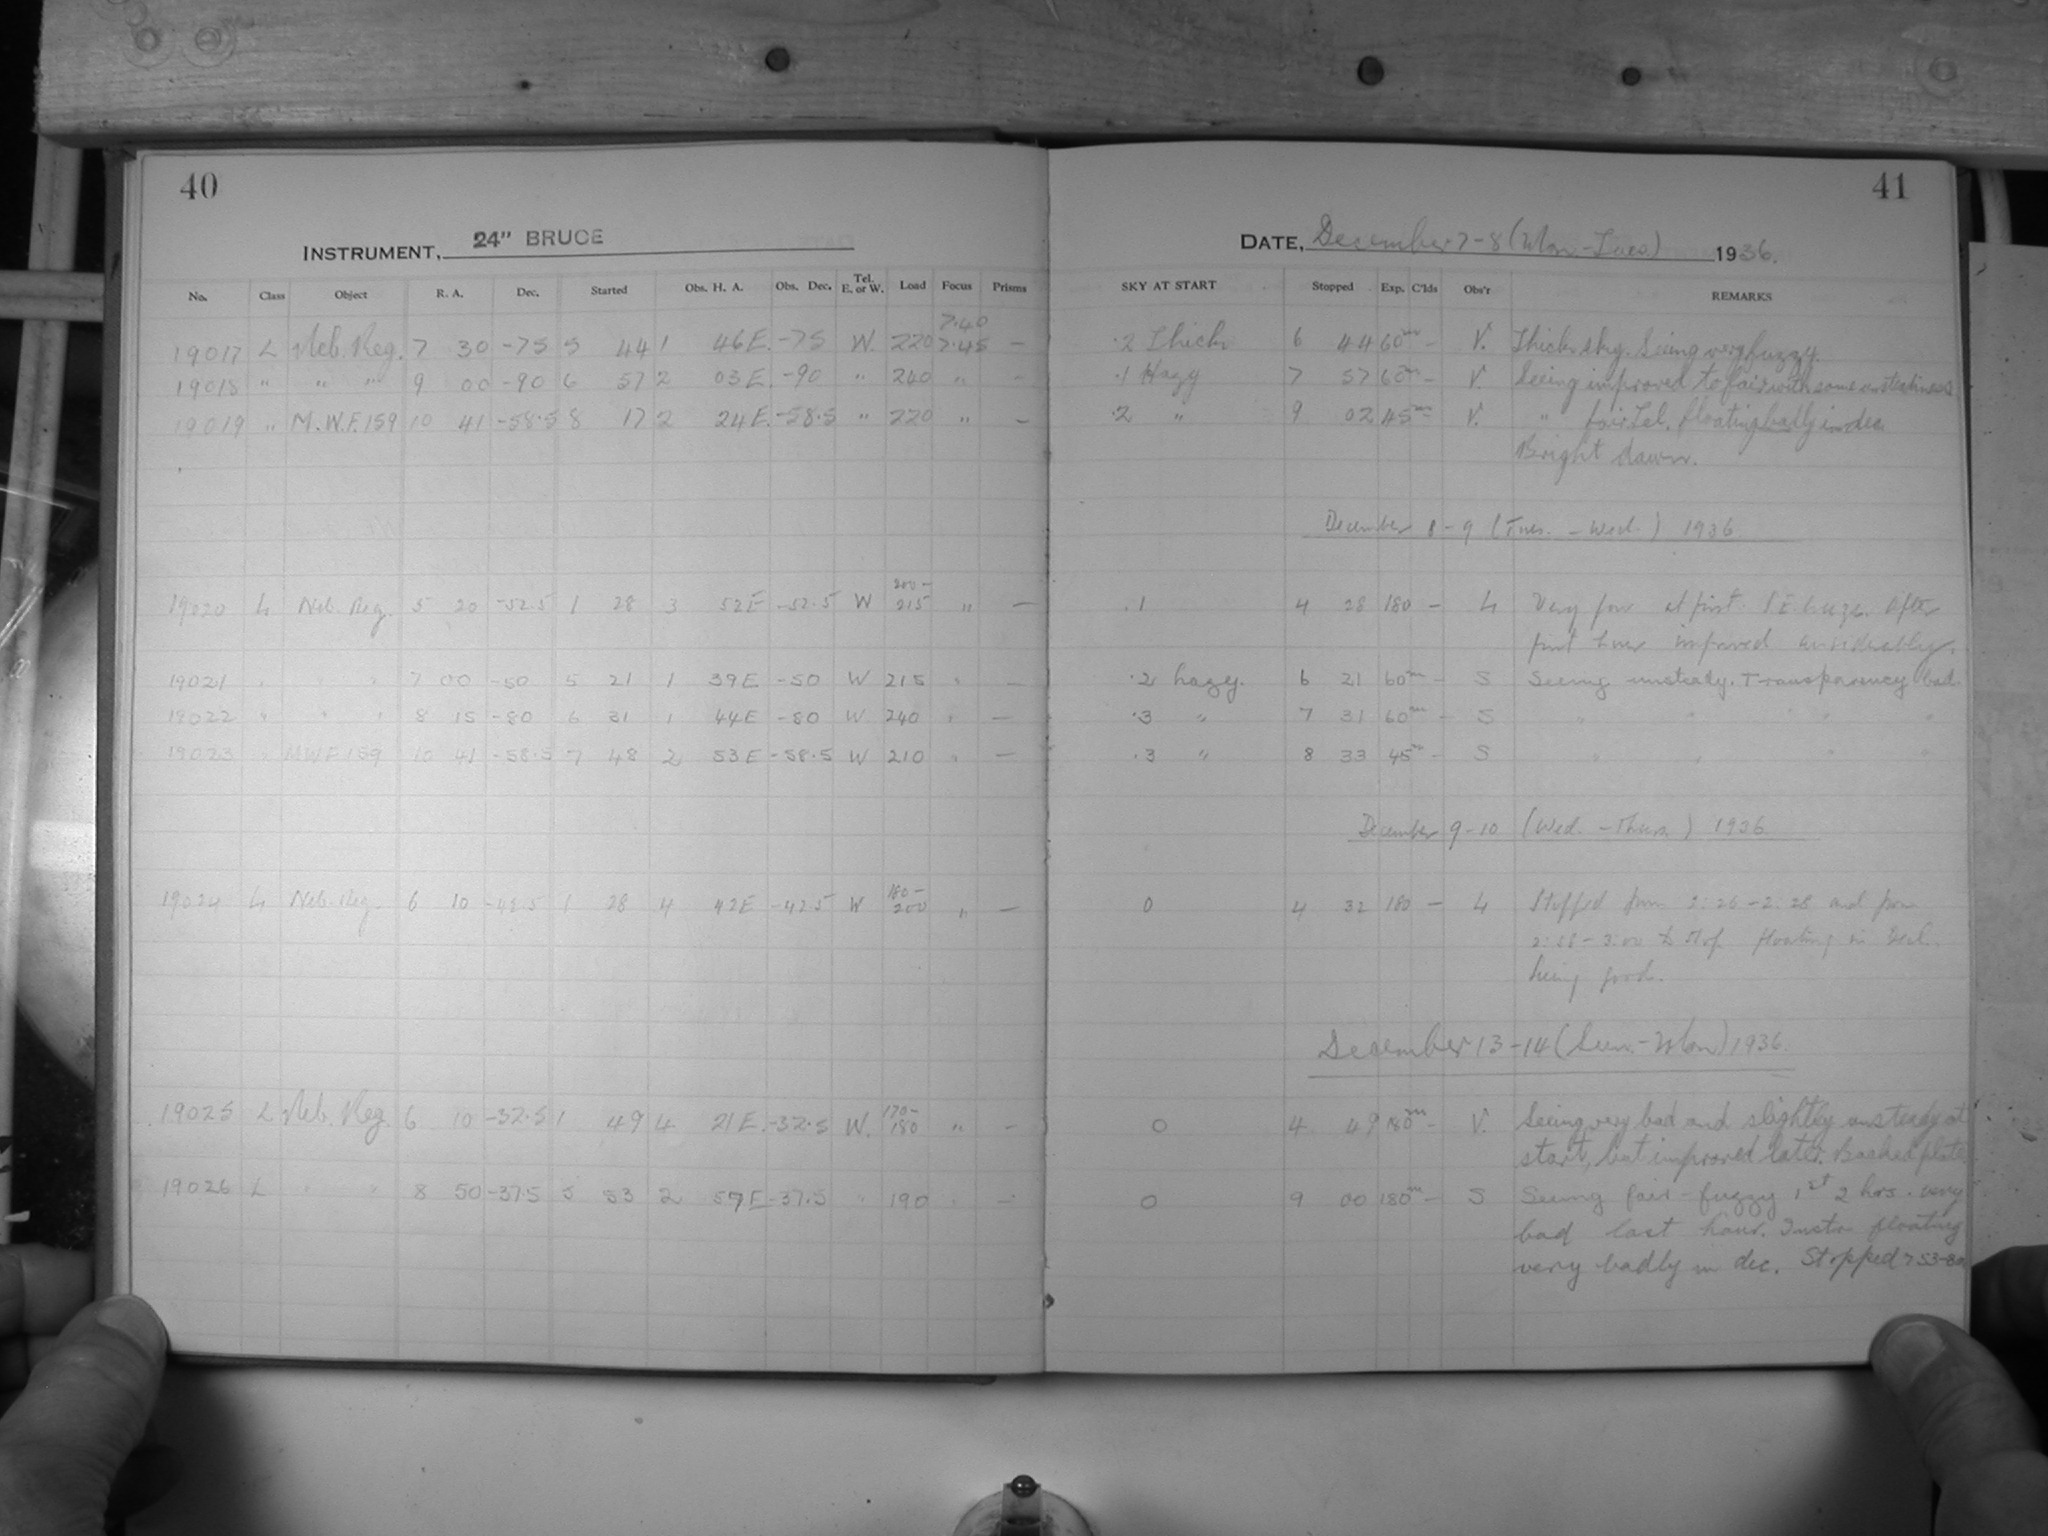 40
INSTRUMENT, 24" BRUCE
No. Class Object R. A. Dec. Started Obs. H. A. Obs. Dec. Tel. E. or W. Load Focus Prisms
7.40
19017 L Neb. Reg. 7 30 -75 5 44 1 46E. -75 W. 220 7.45 —
19018 " " " 9 00 -90 6 57 2 03E. -90 " 240 " —
19019 " M.W.F. 159 10 41 -58.5 8 17 2 24E. -58.5 " 220 " —
200 -
19020 L Neb. Reg. 5 20 -52.5 1 28 3 52E -52.5 W 215 " —
19021 " " " 7 00 -50 5 21 1 39E -50 W 215 " —
19022 " " " 8 15 -80 6 31 1 44E -80 W 240 " —
19023 " MWF 159 10 41 -58.5 7 48 2 53E -58.5 W 210 " —
180 -
19024 L Neb. Reg. 6 10 -42.5 1 28 4 42E -42.5 W 200 " —
170 -
19025 L Neb. Reg. 6 10 -32.5 1 49 4 21E. -32.5 W. 180 " —
19026 L " " 8 50 -37.5 5 53 2 57E -37.5 " 190 " —
41
DATE, December 7-8 (Mon-Tues) 1936.
SKY AT START Stopped Exp. C'lds Obs'r REMARKS
.2 Thick 6 44 60m — V. Thick sky. Seeing very fuzzy.
.1 Hazy 7 57 60m — V. Seeing improved to fair with some unsteadiness
.2 " 9 02 45m — V. " fair Tel. floating badly in dec.
Bright dawn.
December 8-9 (Tues. - Wed.) 1936
.1 4 28 180 — L Very poor at first. After
first hour improved considerably.
.2 hazy. 6 21 60m — S Seeing unsteady. Transparency bad.
.3 " 7 31 60m — S " " " "
.3 " 8 33 45m — S " " " "
December 9-10 (Wed. - Thurs.) 1936
0 4 32 180 — L Stopped from 2:26-2:28 and from
2:58-3:00 to stop floating in Decl.
Seeing good.
December 13-14 (Sun.-Mon) 1936.
0 4 49 180m — V. Seeing very bad and slightly unsteady at
start, but improved later. Backed plate
0 9 00 180m — S Seeing fair - fuzzy 1st 2 hrs. very
bad last hour. Instr. floating
very badly in dec. Stopped 7 53-